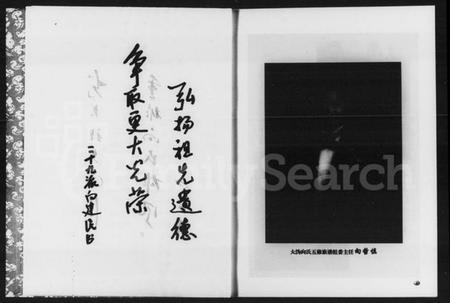 弘扬祖先遗德
争取更大光荣
二十九派向建民日
FamilySearch
大沩向氏五修族谱组委主任 向哲恒